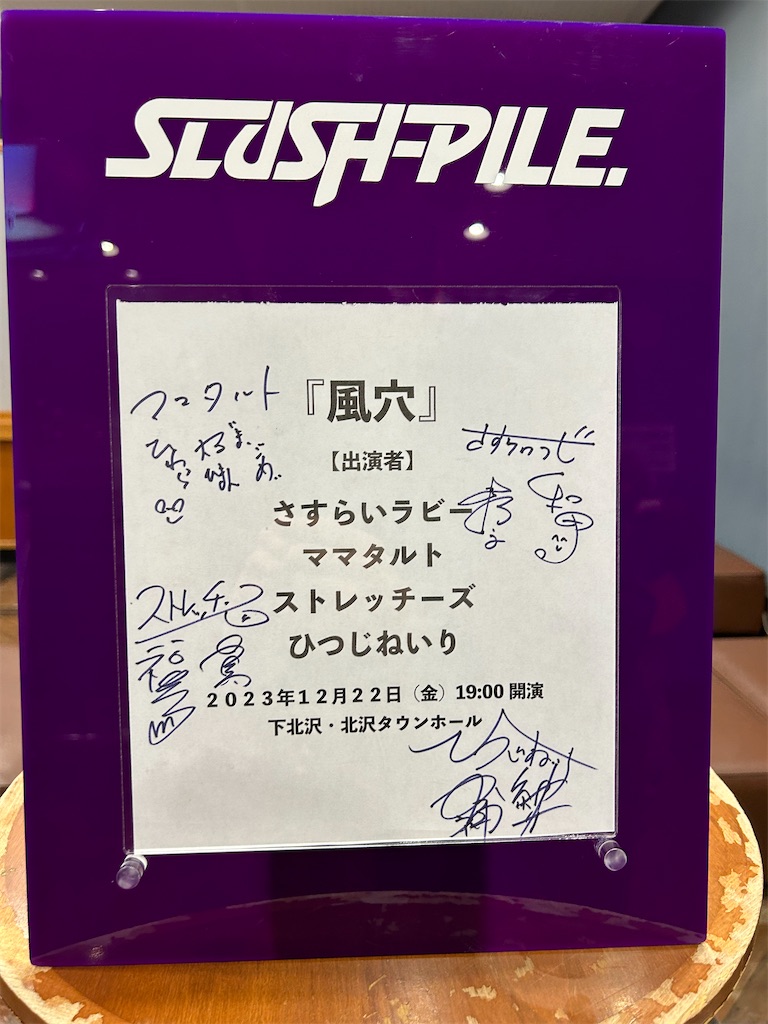 SLUSH-PILE.
『風穴』
【出演者】
さすらいラビー
ママタルト
ストレッチーズ
ひつじねいり
２０２３年１２月２２日（金）19:00 開演
下北沢・北沢タウンホール
ママタルト
ひわら
ストレッチーズ